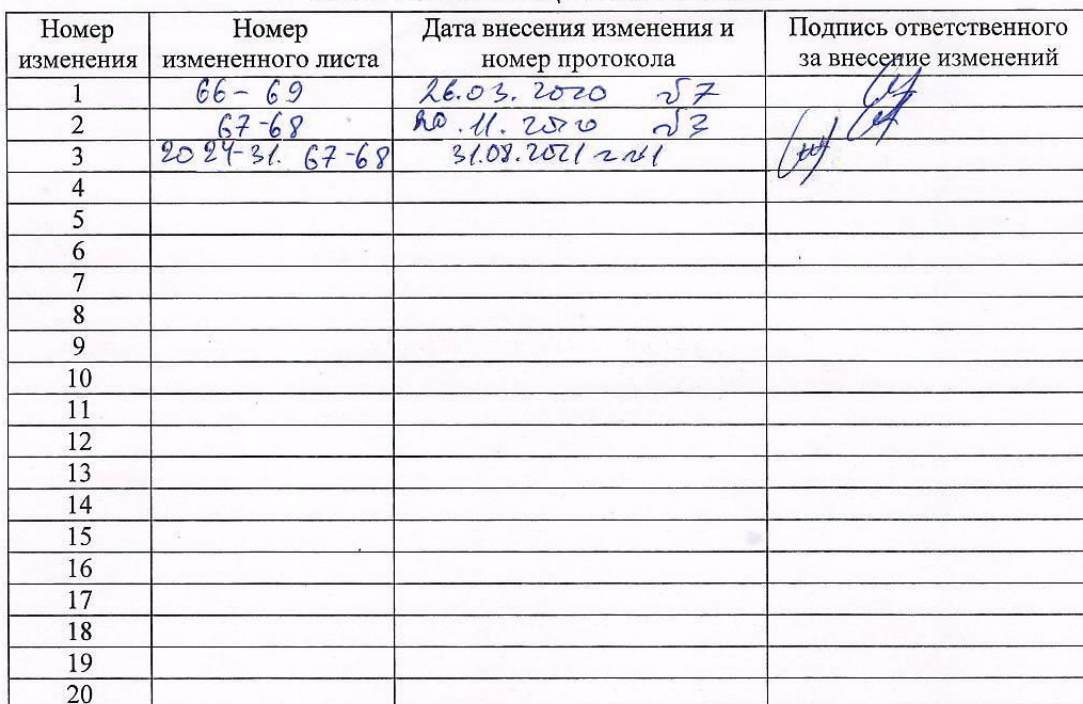 Номер изменения Номер измененного листа Дата внесения изменения и номер протокола Подпись ответственного за внесение изменений
1 66-69 26.03.2020 №7
2 67-68 20.11.2020 №3
3 20 24-31. 67-68 31.08.2021 г №1
4
5
6
7
8
9
10
11
12
13
14
15
16
17
18
19
20